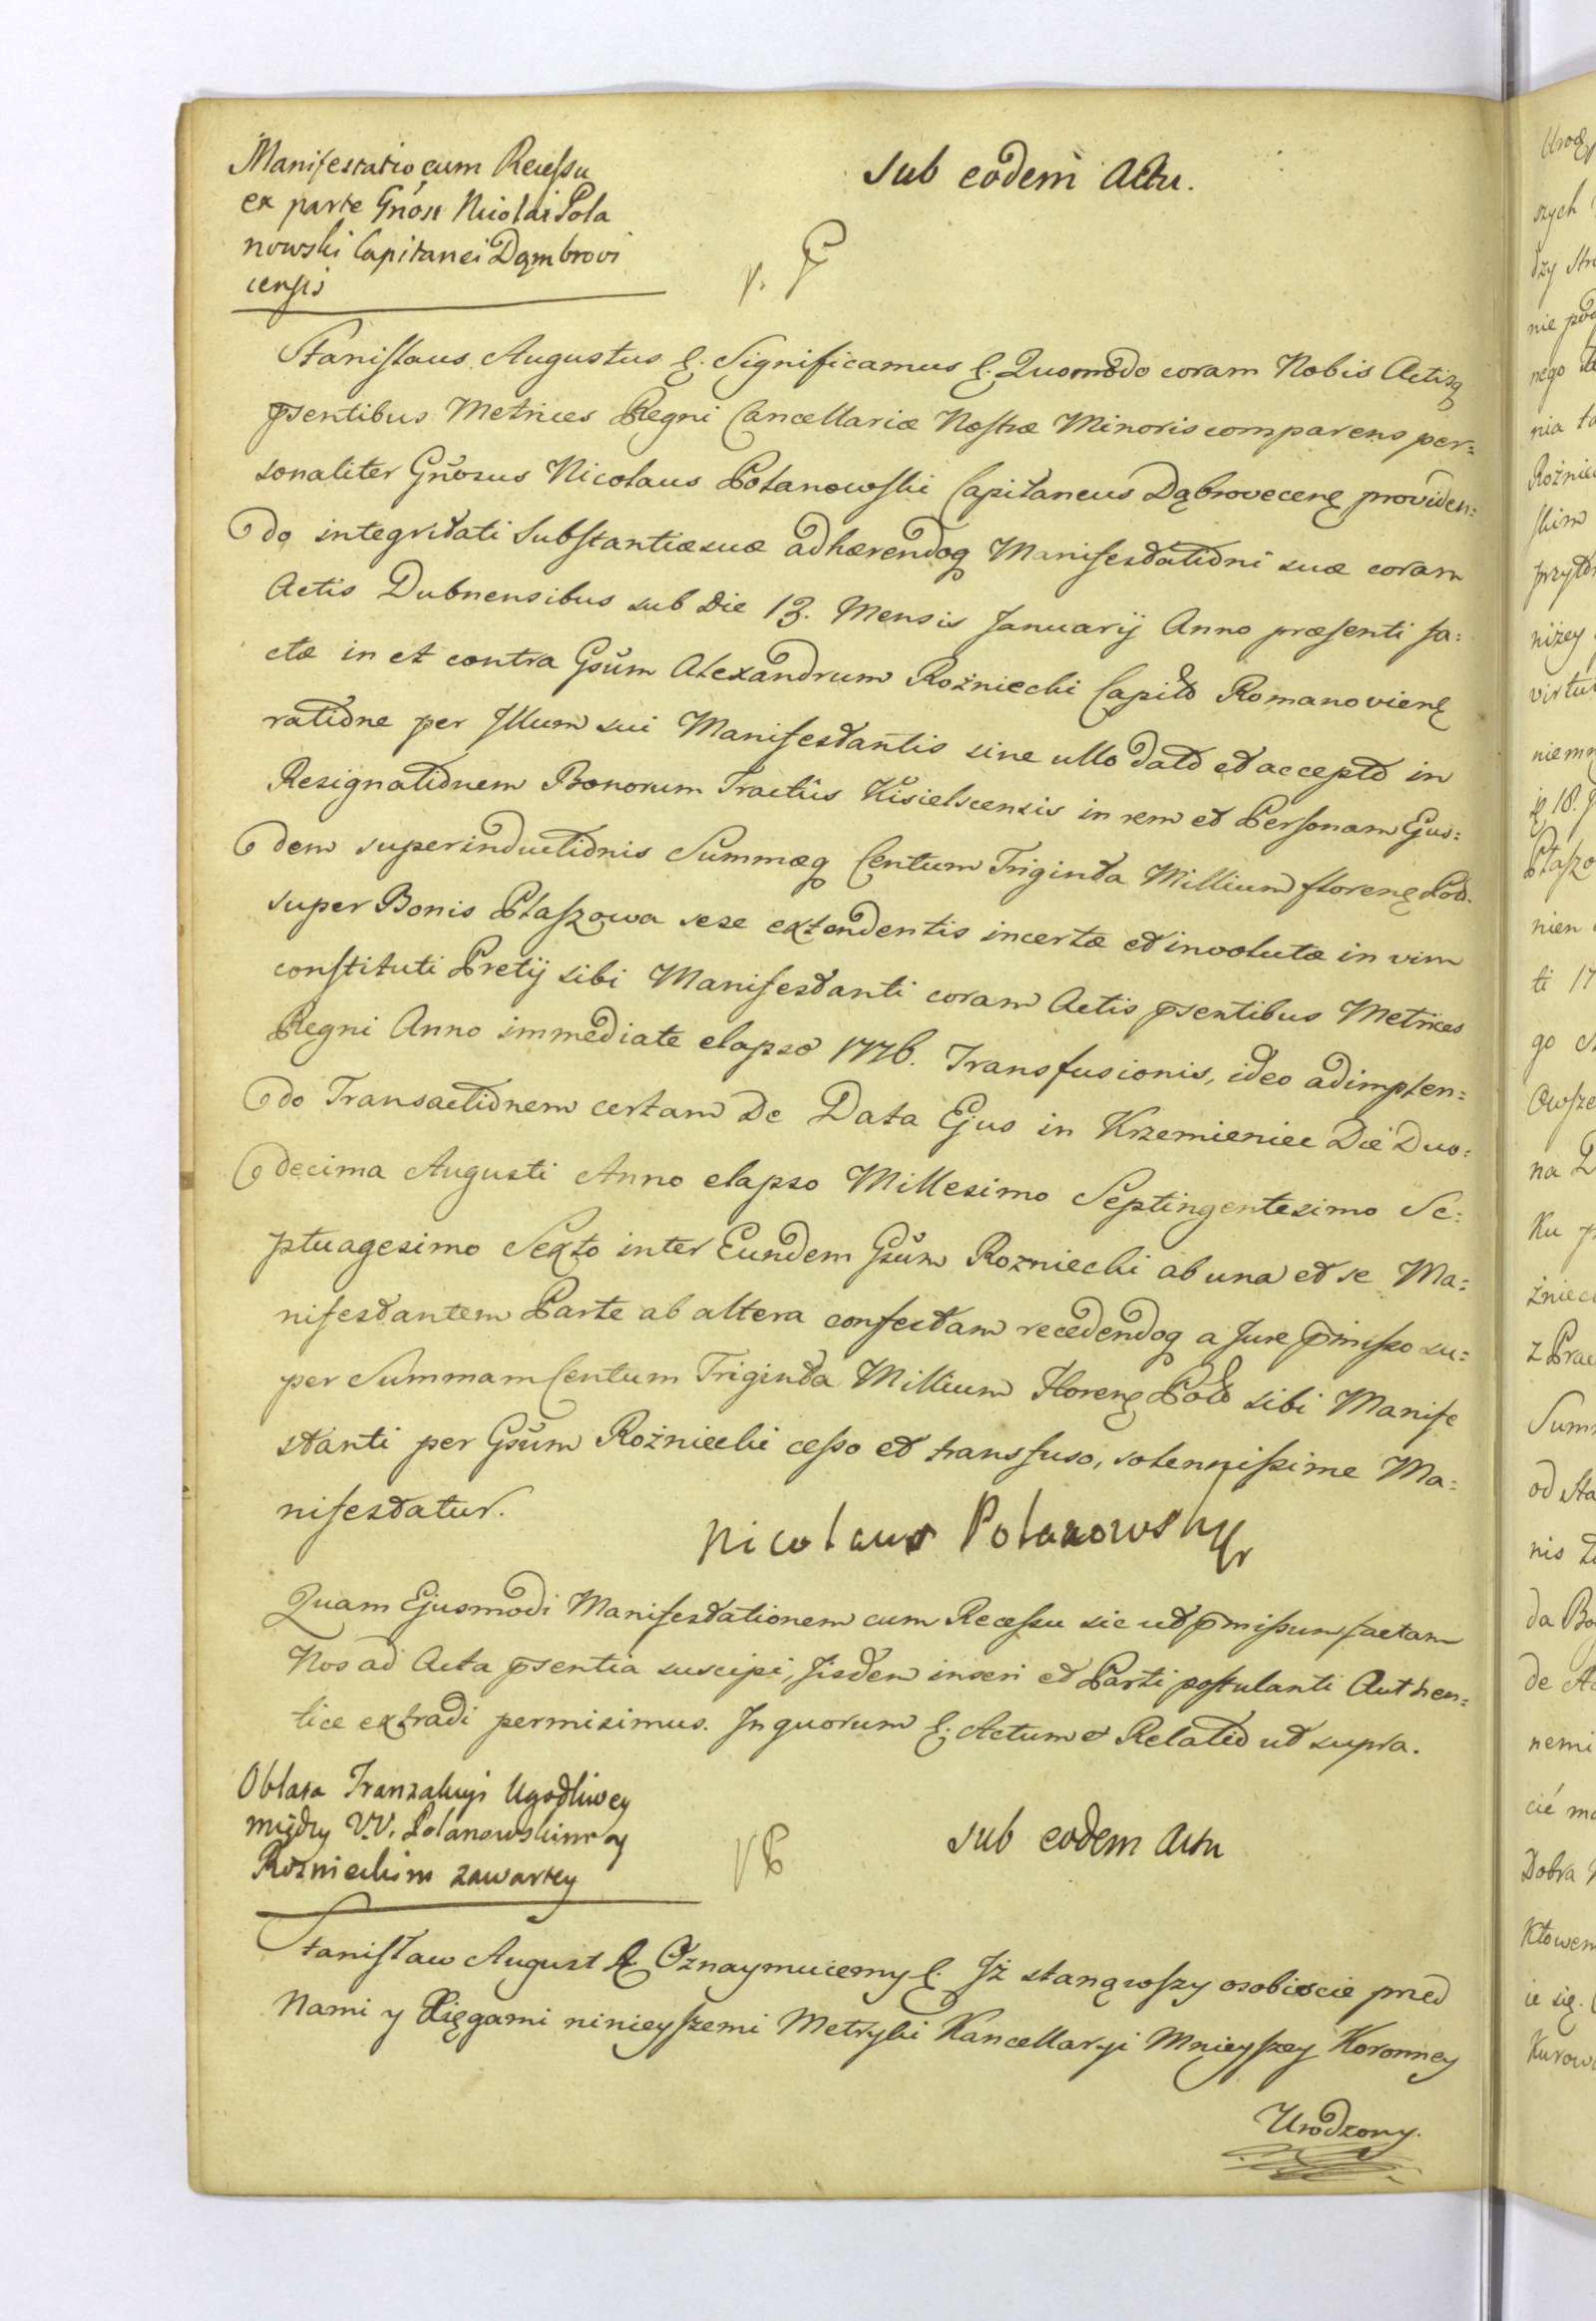 Manifestatio cum Recessu
ex parte Gnosi Nicolai Pola
nowski Capitanei Dąmbrovi
censis
Sub eodem Actu.
Stanislaus Augustus &. Significamus &. Quomodo coram Nobis Actisq
psentibus Metrices Regni Cancellariæ Nostræ Minoris comparens per=
sonaliter Gnosus Nicolaus Polanowski Capitaneus Dąbrovecens providen=
do integritati Substantiæ suæ adhærendoq Manifestationi suæ coram
Actis Dubnensibus sub Die 13. Mensis Januarij Anno præsenti fa=
ctæ in et contra Gsum Alexandrum Rożniecki Capit Romanoviens
ratione per Illum sui Manifestantis sine ullo dato et accepto in
Resignationem Bonorum Tractûs Kisielscensis in rem et Personam Ejus=
dem superinductionis Summæq Centum Triginta Millium floren Pol.
super Bonis Płaszowa sese extendentis incertæ et involutæ in vim
constituti Pretij sibi Manifestanti coram Actis psentibus Metrices
Regni Anno immediate elapso 1776. Transfusionis, ideo adimplen=
do Transactionem certam De Data Ejus in Krzemieniec Die Duo=
decima Augusti Anno elapso Millesimo Septingentesimo Se=
ptuagesimo Sexto inter Eundem Gsum Rozniecki ab una et se Ma=
nifestantem Parte ab altera confectam recedendoq a Jure pmisso su=
per Summam Centum Triginta Millium Floren Pol sibi Manife
stanti per Gsum Rożniecki cesso et transfuso, solennissime Ma=
nifestatur.
Nicolaus Polanowski
Quam Ejusmodi Manifestationem cum Recessu sic ut pmissum factam
Nos ad Acta psentia suscipi, Iisdem inseri et Parti postulanti Authen=
tice extradi permisimus. In quorum &. Actum et Relatio ut supra.
Oblata Tranzakcyi Ugodliwey
między V.V. Polanowskim y
Roznieckim zawartey
Sub eodem Actu
Stanisław August & Oznaymuiemy &. Iż stanąwszy osobiscie przed
Nami y Xięgami ninieyszemi Metryki Kancellaryi Mnieyszey Koronney
Urodzony.